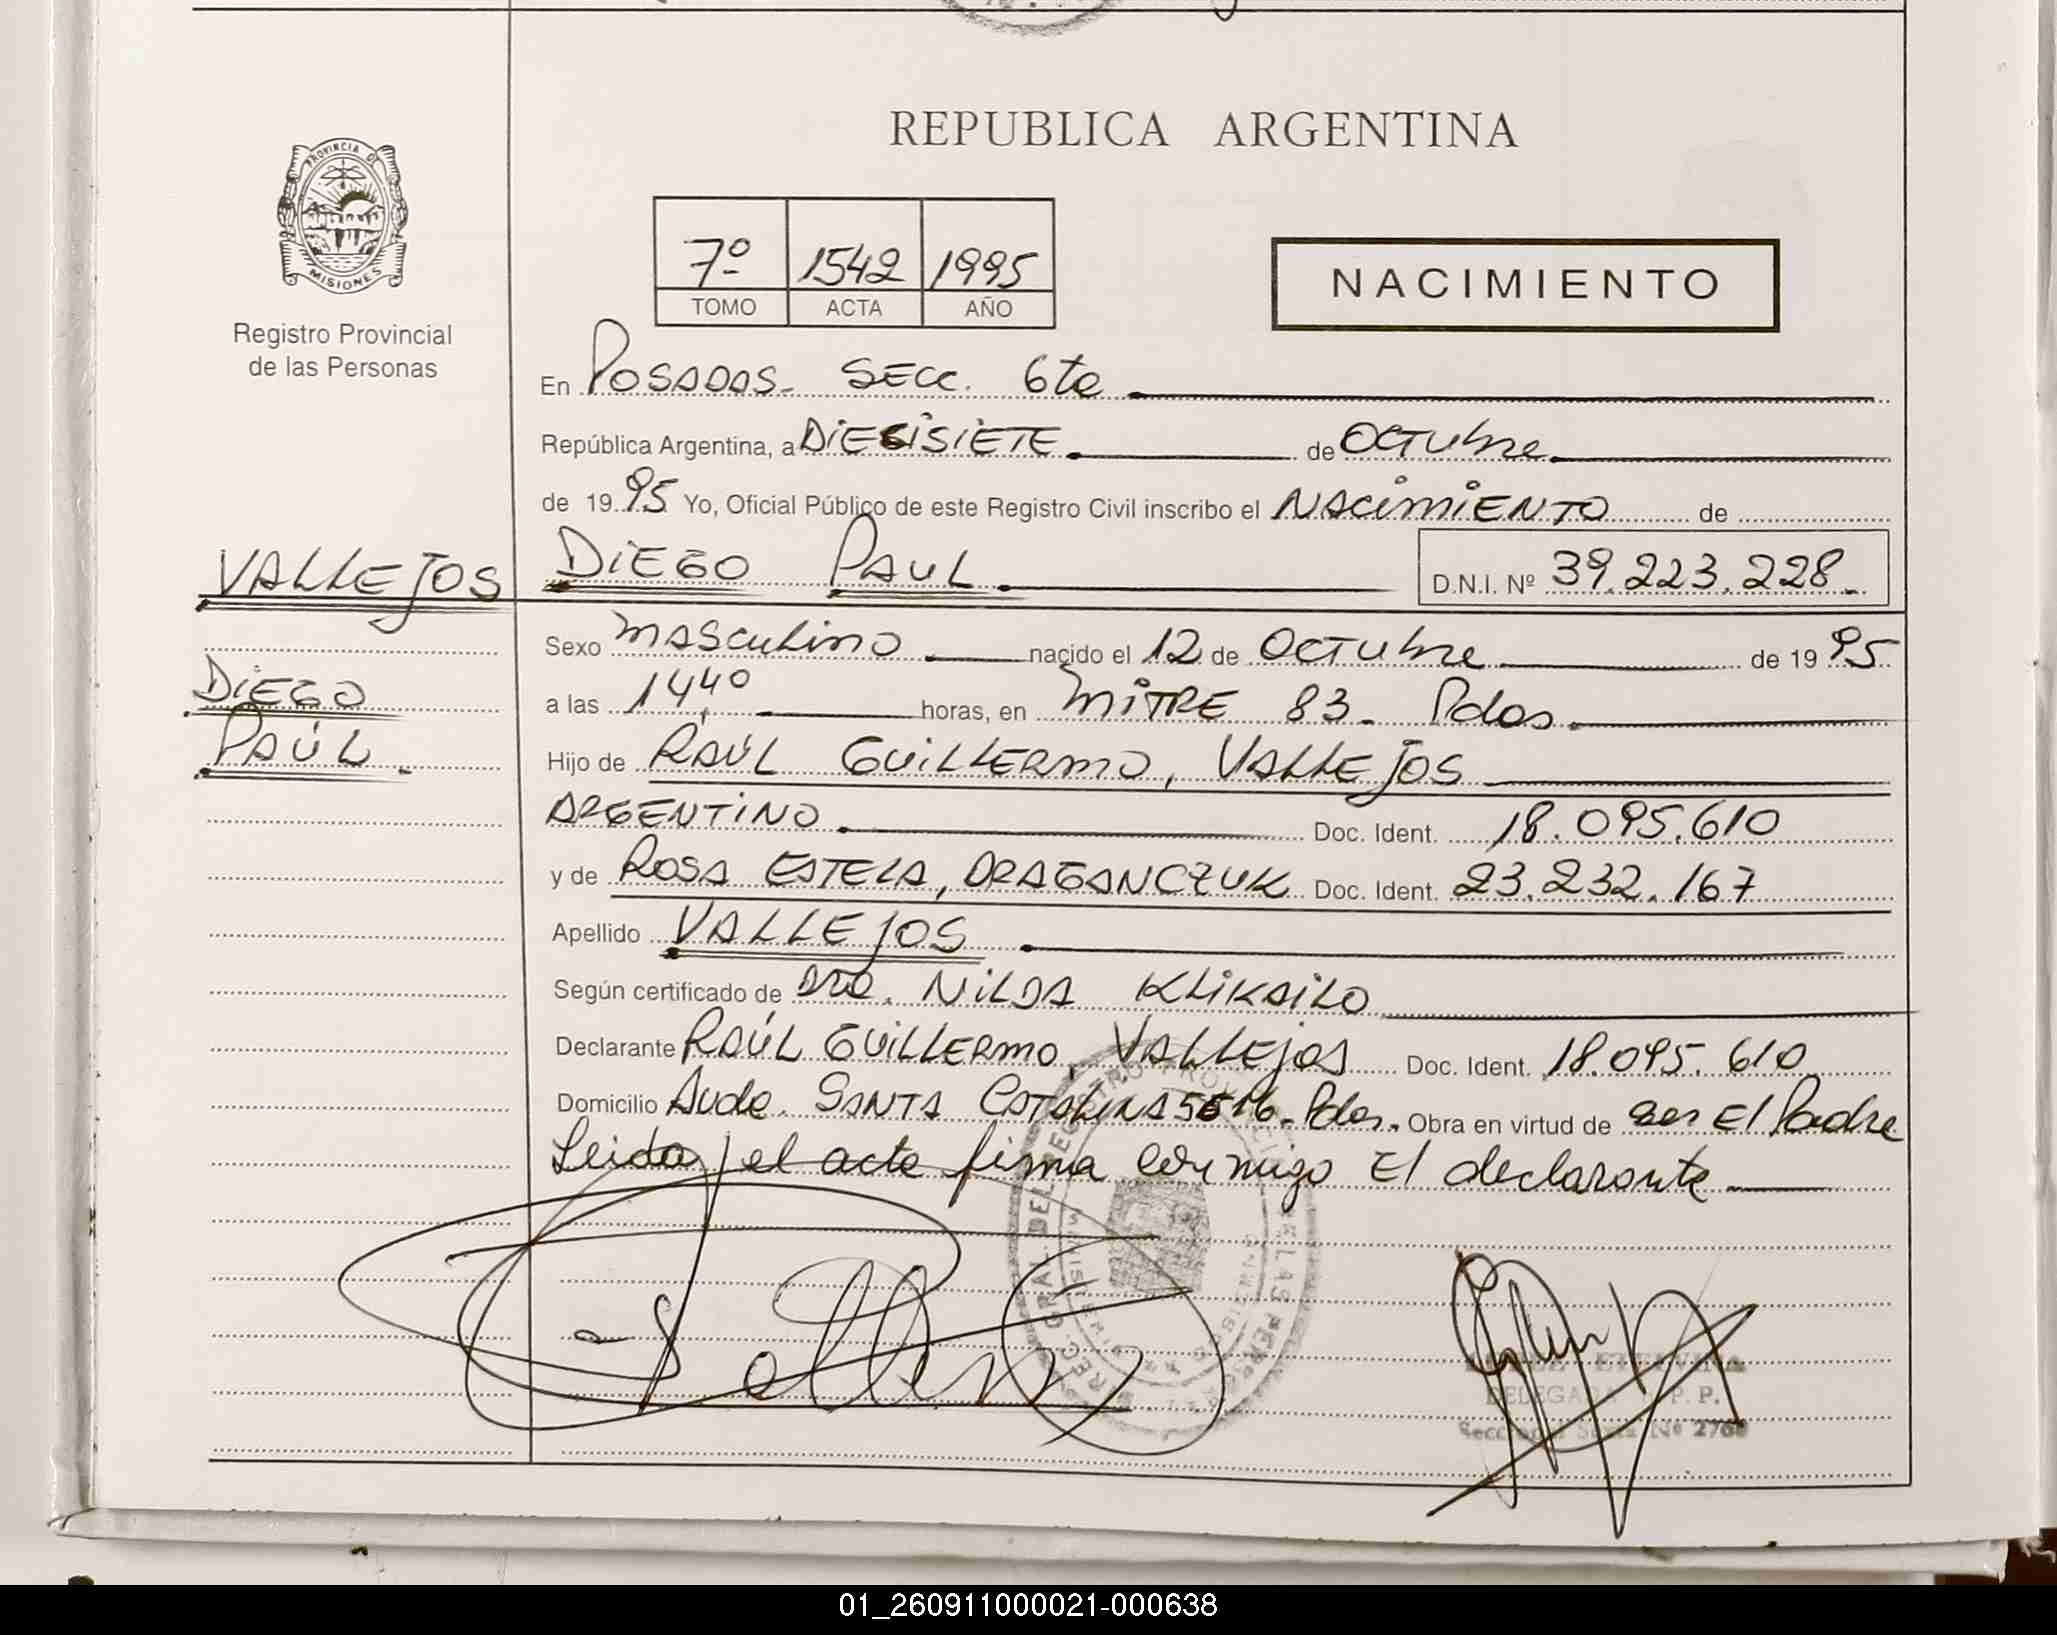 REPUBLICA ARGENTINA
PROVINCIA DE
MISIONES
Registro Provincial
de las Personas
7º 1542 1995
TOMO ACTA AÑO
NACIMIENTO
En POSADAS. SECC. 6ta
República Argentina, a DIECISIETE de OCTUbre
de 1995 Yo, Oficial Público de este Registro Civil inscribo el NACIMIENTO de
VALLEJOS DIEGO PAUL D.N.I. Nº 39.223.228.
Sexo MASCULINO nacido el 12 de OCTUbre de 1995
DIEGO
a las 14,40 horas, en MITRE 83. Pdas.
PAÚL.
Hijo de RAÚL GUILLERMO, VALLEJOS
ARGENTINO Doc. Ident. 18.095.610
y de ROSA ESTELA, DRAGANCZUK Doc. Ident. 23.232.167
Apellido VALLEJOS
Según certificado de Dra. NILDA KLIKAILO
Declarante RAÚL GUILLERMO, VALLEJOS Doc. Ident. 18.095.610
Domicilio Avda. SANTA CATALINA 5616. Pdas. Obra en virtud de ser El Padre
Leida el acta firma conmigo El declarante
DELEGADA P. P.
Nº 2768
01_260911000021-000638